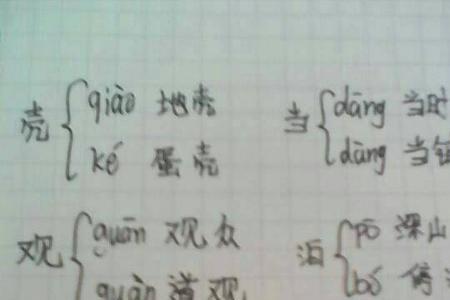 壳 qiào 地壳
ké 蛋壳
当 dāng 当时
dàng 当
观 guān 观众
guàn 道观
泊 pō 深山
bó 停